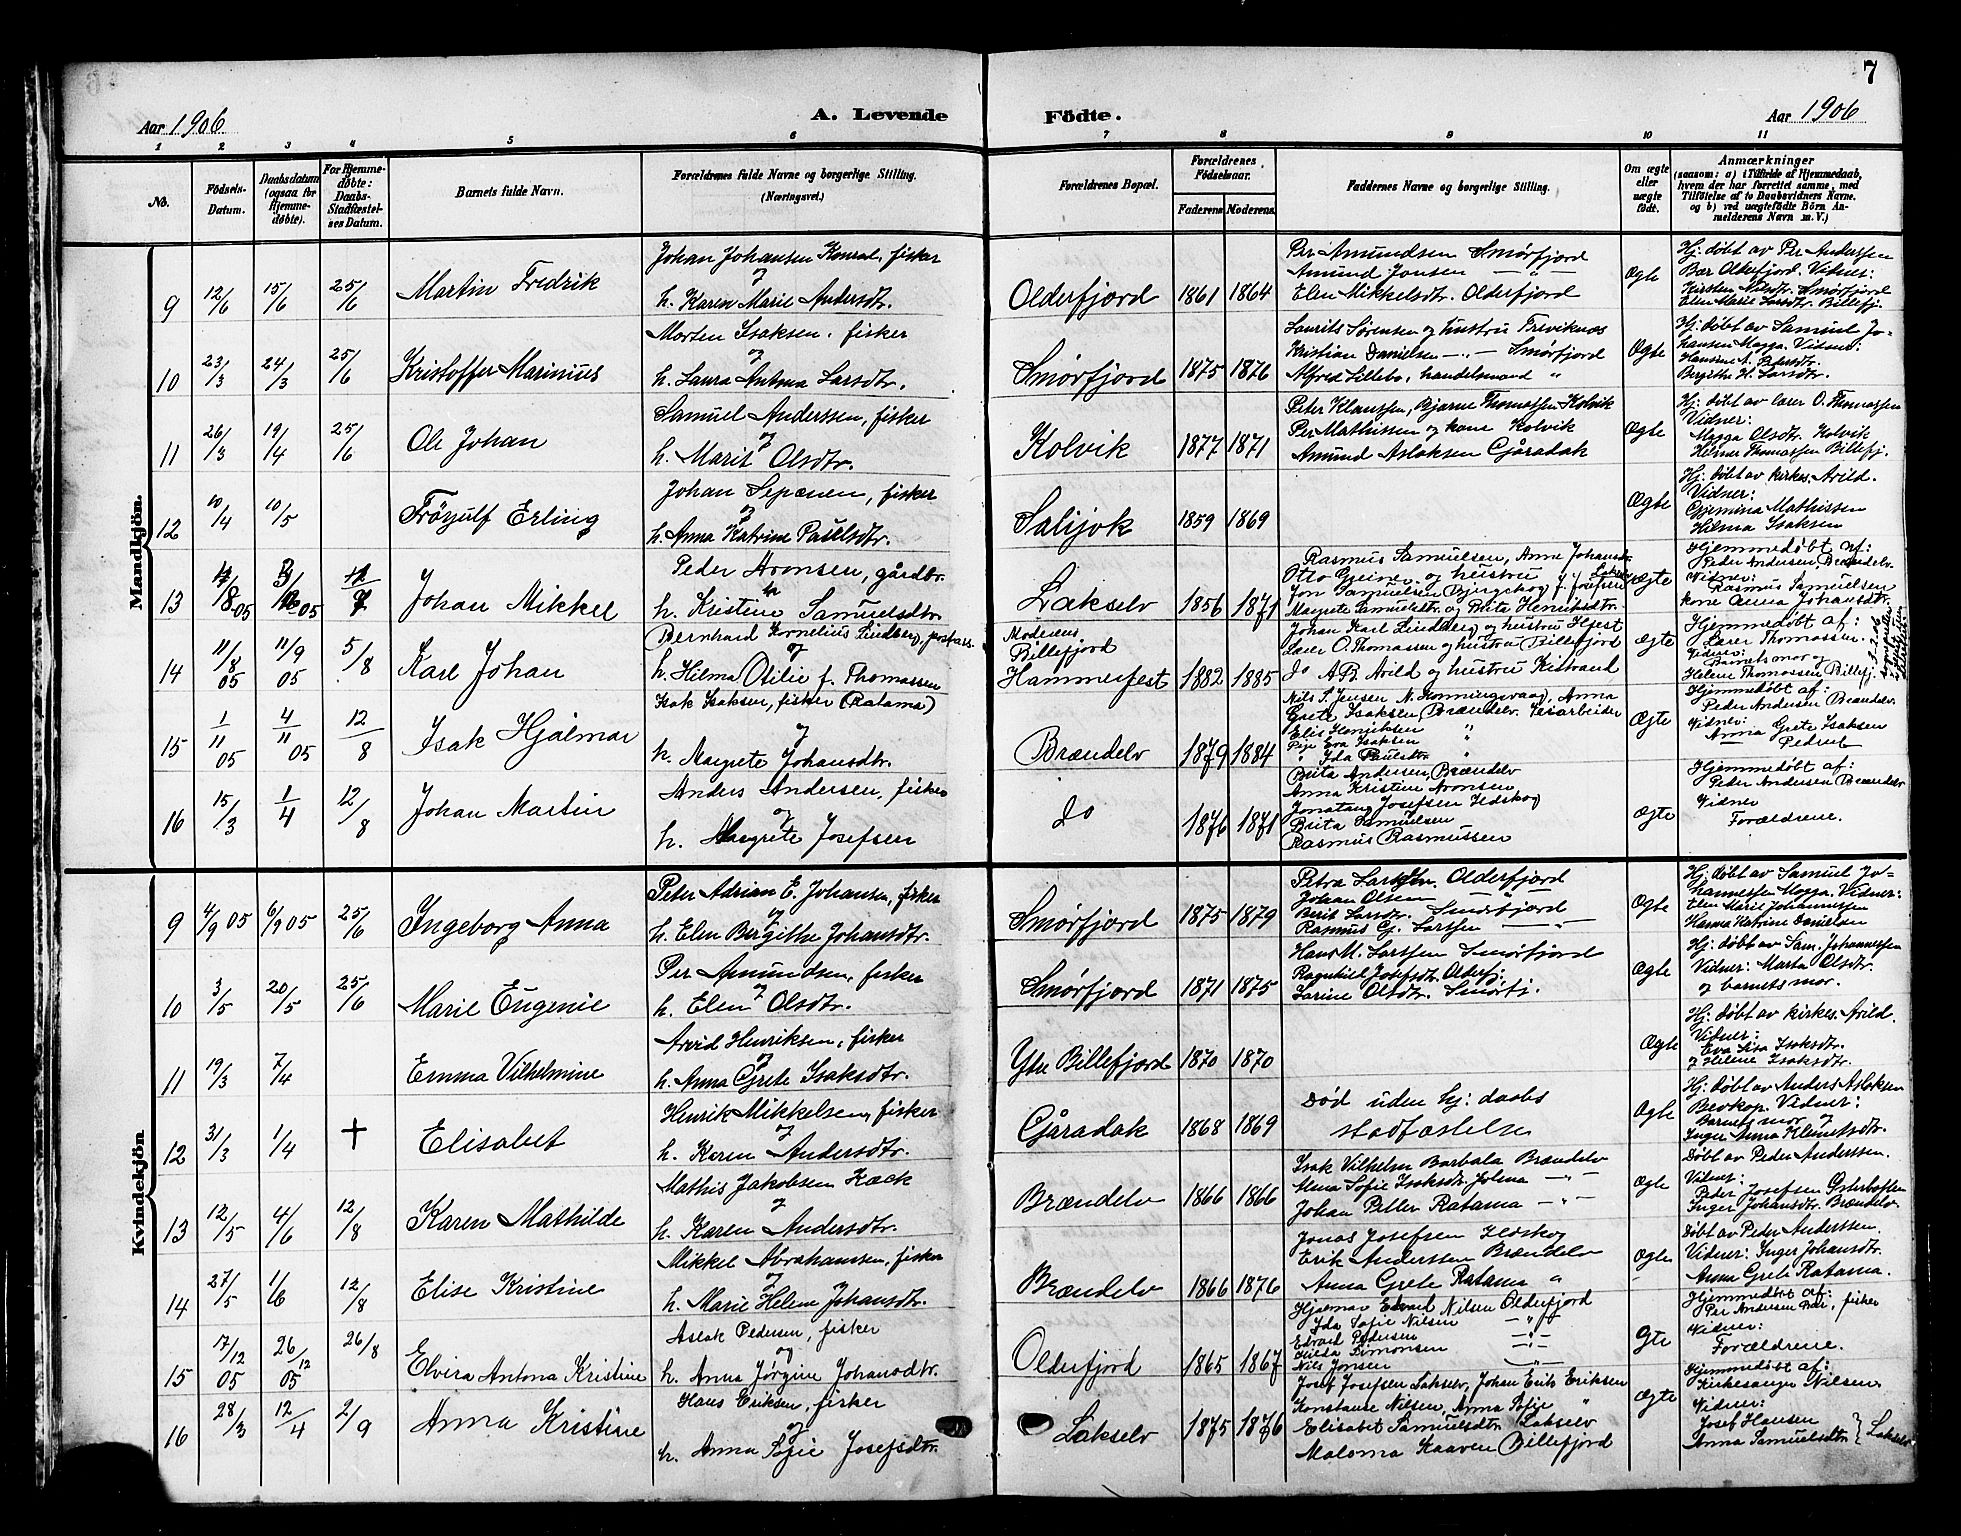 7
Aar 1906
A. Levende Födte.
Aar 1906
1 2 3 4 5 6 7 8 9 10 11
No.
Födsels-Datum.
Daabsdatum (ogsaa for Hjemmedøbte).
For Hjemmedøbte: Daabs-Stadfæstelses Datum.
Barnets fulde Navn.
Forældrenes fulde Navne og borgerlige Stilling.
(Næringsvei.)
Forældrenes Bopæl.
Forældrenes Fødselsaar.
Faderens Moderens
Faddernes Navne og borgerlige Stilling.
Om ægte eller uægte født.
Anmærkninger
(saasom: a) i Tilfælde af Hjemmedaab, hvem der har forrettet samme, med Tilføielse af to Daabsvidners Navne. og b) ved uægtefödte Börn Anmelderens Navn m.V.)
Mandkjön.
9 12/6 15/6 25/6 Martin Fredrik
Johan Johansen Konrad, fisker
og
h. Karen Marie Andersdtr.
Olderfjord 1861 1864
Per Amundsen Smørfjord
Amund Jonsen — " —
Elen Mikkelsdtr. Olderfjord
Ægte
Hj. døbt av Per Anderssen
Bær Olderfjord. Vidner:
Kirsten Nilsdtr. Smørfjord
Elen Marie Larsdtr. Billefj.
10 23/3 24/3 25/6 Kristoffer Marinius
Morten Isaksen, fisker
og
h. Laura Antona Larsdtr.
Smørfjord 1875 1876
Laurits Sørensen og hustru Treviknes
Kristian Danielsen — " — Smørfjord
Alfred Lillebo, handelsmand "
Ægte
Hj. døbt av Samuel Jo-
hansen Magga. Vidner:
Hansine A. Pedersdtr.
Bergithe H. Larsdtr.
11 26/3 19/4 25/6 Ole Johan
Samuel Anderssen, fisker
og
h. Marit Olsdtr.
Kolvik 1877 1871
Peter Klaussen, Bjarne Thomassen Kolvik
Per Mathissen og kone Kolvik
Amund Aslaksen Gjåradak
Ægte
Hj. døbt av lærer O. Thomassen
Vidner:
Magga Olsdtr. Kolvik
Helene Thomassen Billefj.
12 10/4 10/5 Frøyulf Erling
Johan Sepænen, fisker
og
h. Anna Katrine Paulsdtr.
Salijok 1859 1869
Ægte
Hj. døbt av kirkes. Arild.
Vidner:
Gjemina Mathissen
Hilma Isaksen
13 Johan Mikkel
Peder Aronsen, gårdbr.
h. Kristine Samuelsdtr.
Lakselv 1856 1871
Rasmus Samuelsen, Anne Johansdtr.
Otto Greiner og hustru Lakselv
Jon Samuelsen Bjergskog
Margrete Samuelsdtr. og Brita Henriksdtr.
Ægte
Hjemmedøbt af:
Peder Andersen, Brændelv
Vidner:
Rasmus Samuelsen
kone Anna Johansdtr.
14 11/8 05 11/9 05 5/8 Karl Johan
Bernhard Kornelius Lindberg,
og
h. Hilma Otilie f. Thomassen
Moderens
Billefjord
Hammerfest 1882 1885
Johan Karl Lindberg og hustru Hfest
Lærer O. Thomassen og hustru Billefjord
do A.B. Arild og hustru Kistrand
Ægte
Hjemmedøbt af:
Lærer Thomassen.
Vidner:
Barnets mor og
Helene Thomassen Billefj.
15 1/11 05 4/11 05 12/8 Isak Hjalmar
Isak Isaksen, fisker (Ratama)
og
h. Margrete Johansdtr.
Brændelv 1879 1884
Nils S. Jensen N. Honningsvaag, Anna
Grete Isaksen, Brændelv.
Elis Henriksen "
Pige Eva Isaksen "
" Ida Paulsdtr. "
Ægte
Hjemmedøbt af:
Peder Andersen Brændelv
Vidner:
Anna Grete Isaksen
16 15/3 1/4 12/8 Johan Martin
Anders Andersen, fisker
og
h. Margrete Josefsen
do 1876 1871
Brita Andersen, Brændelv
Anna Kristine Aronsen
Jonatang Josefsen Ildskog
Brita Samuelsen
Rasmus Rasmussen
Ægte
Hjemmedøbt af:
Peder Andersen Brændelv
Vidner
Forældrene.
Kvindekjön
9 4/9 05 6/9 05 25/6 Ingeborg Anna
Peter Adrian E. Johansen, fisker
og
h. Elen Bergithe Johansdtr.
Smørfjord 1875 1879
Petra Larssen. Olderfjord
Johan Olsen "
Berit Larsdtr. Smørfjord
Rasmus Gj. Larssen — " —
Ægte
Hj. døbt av Samuel Jo-
hannessen Magga. Vidner:
Elen Marie Johannessen
Hanna Katrine Danielsen
10 3/5 20/5 25/6 Marie Eugenie
Per Amundsen, fisker
og
h. Elen Olsdtr.
Smørfjord 1871 1875
Hans M. Larssen Smørfjord
Ragnhild Josefsdtr. Olderfj.
Larine Olsdtr. Smørfj.
Ægte
Hj. døbt av Sam. Johannessen
Vidner: Marta Olsdtr.
og barnets mor.
11 19/3 7/4 Emma Vilhelmine
Arvid Henriksen, fisker
og
h. Anna Grete Isaksdtr.
Ytre Billefjord 1870 1870
Ægte
Hj. døbt av kirkes. Arild.
Vidner:
Eva Lisa Isaksdtr.
og Helene Isaksdtr.
12 31/3 1/4 + Elisabet
Henrik Mikkelsen, fisker
og
h. Karen Andersdtr.
Gjåradak 1868 1869
Død uden hj: daabs
stadfæstelse
Ægte
Hj: døbt av Anders Aslaksen
Beskop. Vidner:
Barnets mor og
Inger Anna Klemetsdtr.
13 12/5 4/6 12/8 Karen Mathilde
Mathis Jakobsen Kæck
og
h. Karen Andersdtr.
Brændelv 1866 1866
Isak Vilhelm Barbala Brændelv
Mina Sofie Isaksdtr. Johna — " —
Johan Petter Ratama — " —
Ægte
Døbt av Peder Anderssen.
Vidner:
Peder Josefsen Østerbotten
Inger Johansdtr. Brændelv
14 27/5 1/6 12/8 Elise Kristine
Mikkel Abrahamsen, fisker
og
h. Marie Helene Johansdtr.
Brændelv 1866 1876
Jonas Josefsen Ildskog
Erik Anderssen Brændelv
Anna Grete Ratama "
Ægte
Døbt av Peder Anderssen.
Vidner: Inger Johansdtr.
Anna Grete Ratama.
15 17/12 05 26/12 05 26/8 Elvira Antona Kristine
Aslak Pedersen, fisker
og
h. Anna Jørgine Johansdtr.
Olderfjord 1865 1867
Hjalmar Edvard Nilsen Olderfjord
Ida Sofie Nilsen — " —
Edvard Pedersen — " —
Hulda Simonsen
Nils Jonsen — " —
Ægte
Hjemmedøbt af:
Per Andersen Bær, fisker
Vidner:
Forældrene.
16 28/3 12/4 2/9 Anna Kristine
Hans Eriksen, fisker
og
h. Anna Sofie Josefsdtr.
Lakselv 1875 1876
Josef Josefsen Lakselv, Johan Erik Eriksen
Konstanse Nilsen, Anna Sofie "
Elisabet Samuelsdtr. Lakselv
Maloma Kaaven Billefjord
Ægte
Hjemmedøbt af:
Kirkesanger Nilsen
Vidner:
Josef Hansen
Anna Samuelsdtr. } Lakselv